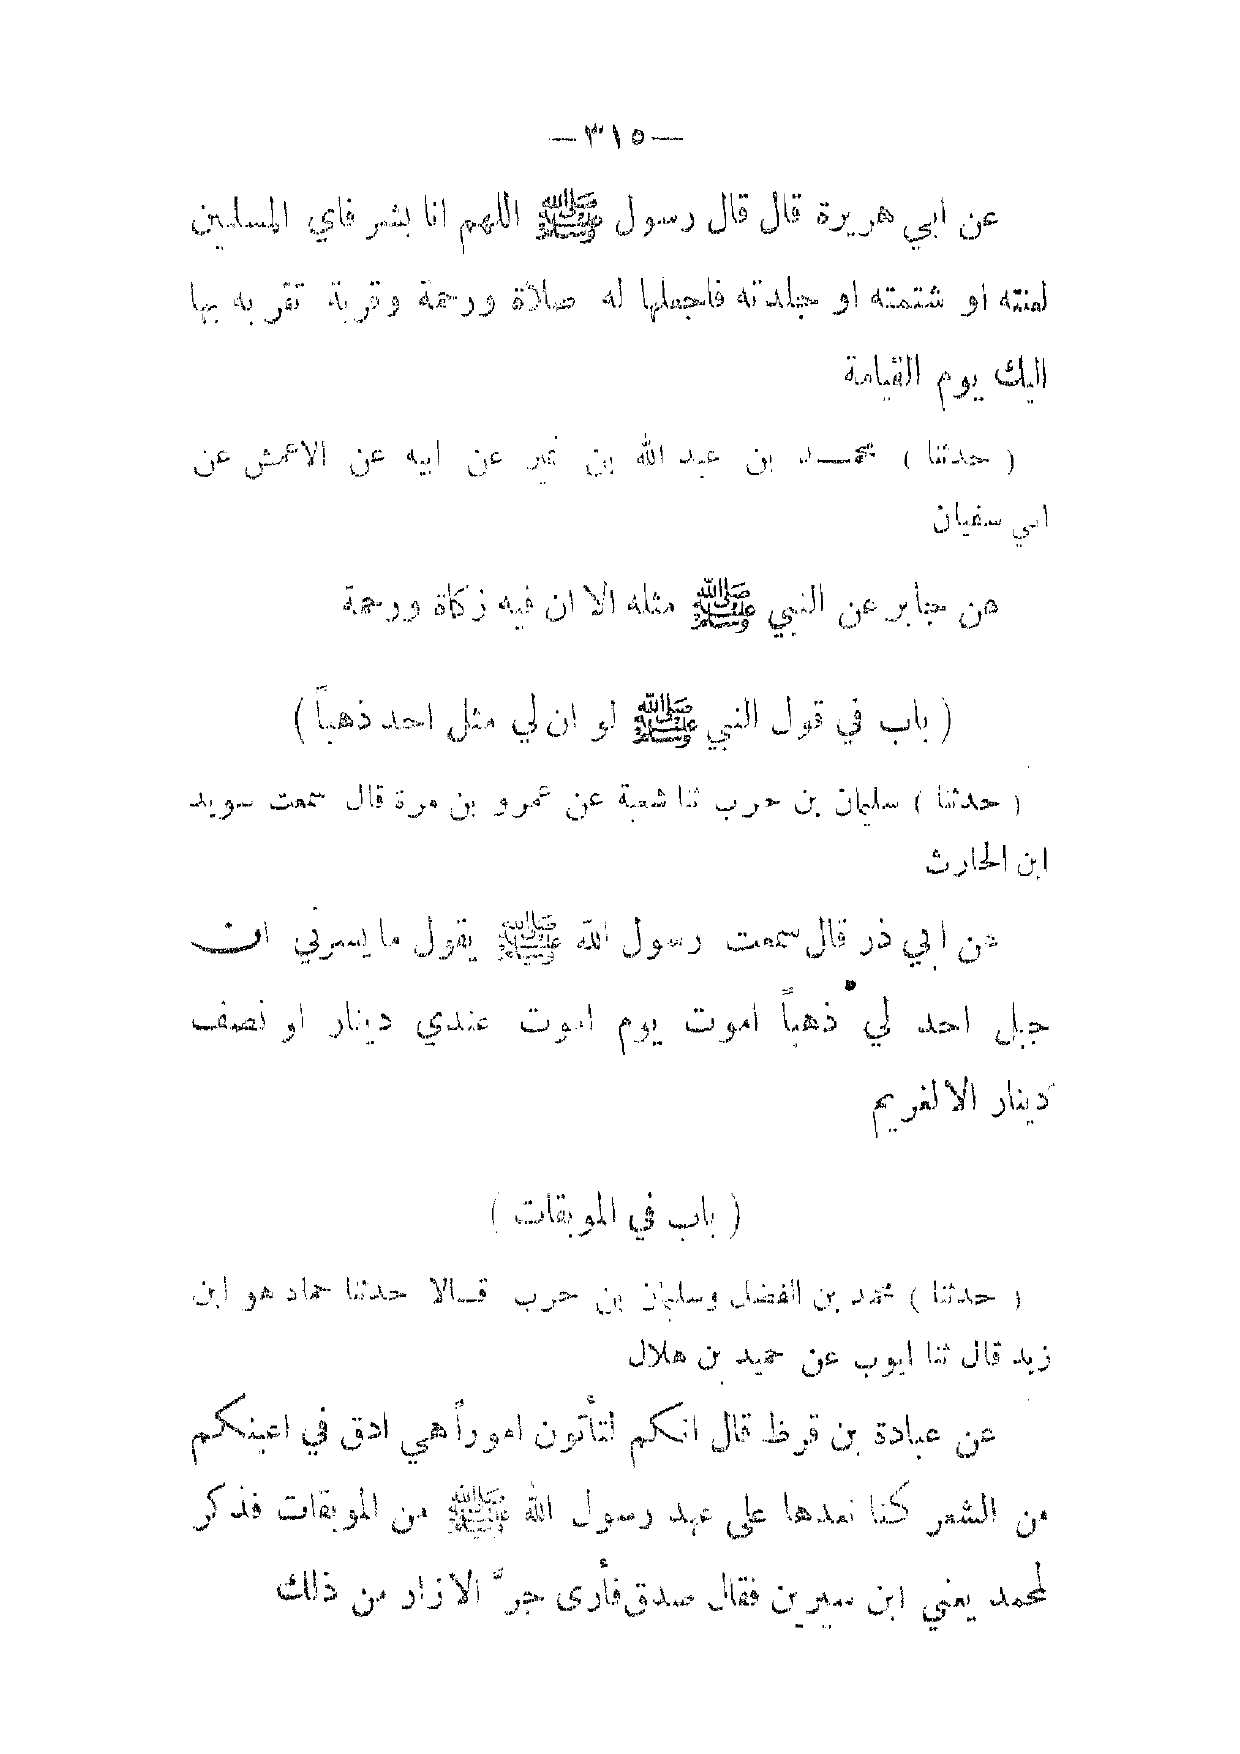 —٣١٥—
عن ابي هريرة قال قال رسول ﷺ اللهم انا بشر فاي المسلمين
لعنته او شتمته او جلدته فاجعلها له صلاة ورحمة وقربة تقربه بها
اليك يوم القيامة
( حدثنا ) محمد بن عبد الله بن نمير عن ابيه عن الاعمش عن
ابي سفيان
عن جابر عن النبي ﷺ مثله الا ان فيه زكاة ورحمة
( باب في قول النبي ﷺ لو ان لي مثل احد ذهباً )
( حدثنا ) سليمان بن حرب ثنا شعبة عن عمرو بن مرة قال سمعت سويد
ابن الحارث
عن ابي ذر قال سمعت رسول الله ﷺ يقول ما يسرني ان
جبل احد لي ذهباً اموت يوم اموت عندي دينار او نصف
دينار الا لغريم
( باب في الموبقات )
( حدثنا ) محمد بن الفضل وسليمان بن حرب قالا حدثنا حماد هو ابن
زيد قال ثنا ايوب عن حميد بن هلال
عن عبادة بن قرظ قال انكم لتأتون اموراً هي ادق في اعينكم
من الشعر كنا نعدها على عهد رسول الله ﷺ من الموبقات فذكر
لمحمد يعني ابن سيرين فقال صدق فأرى جرّ الازار من ذلك